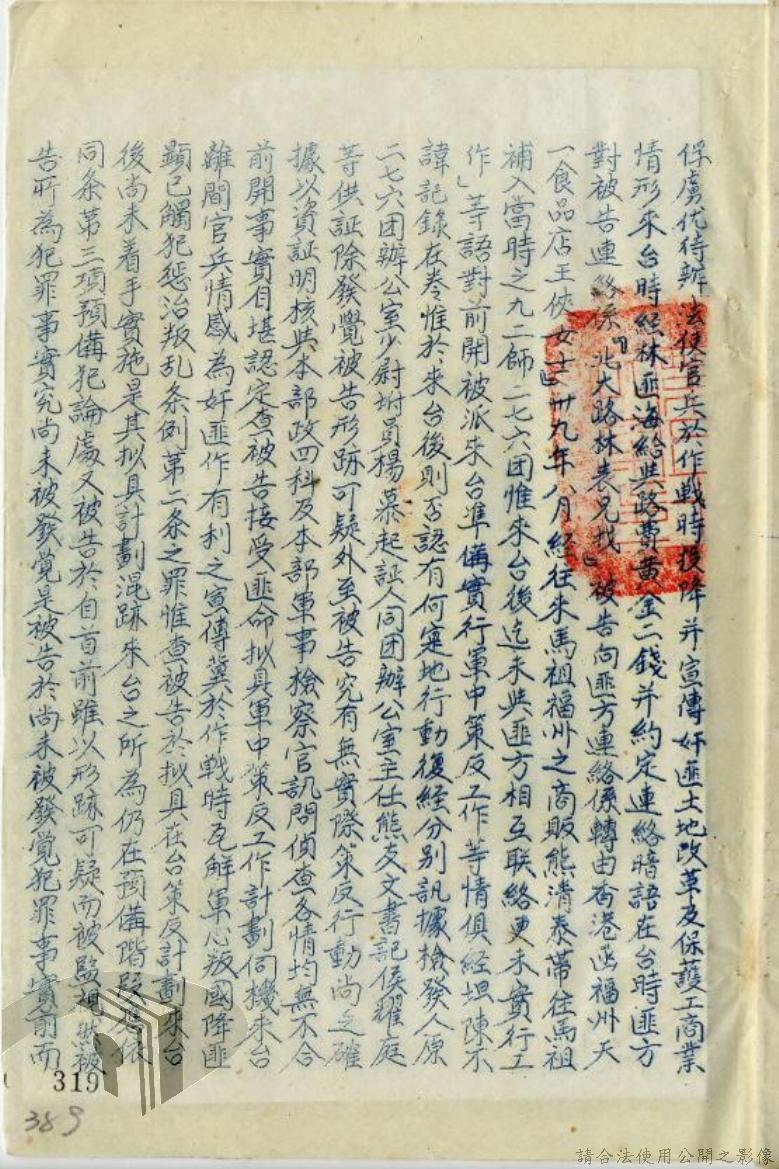 俘虜优待辦法使官兵於作戰時投降并宣傳奸匪土地改革及保護工商業
情形來台時經林匪海給與路費黃金二錢并約定連絡暗語在台時匪方
對被告連絡係『北大路林表兄找』被告向匪方連絡係轉由香港函福州天
一食品店王俠女士』卅九年八月經往來馬祖福州之商販熊清泰帶往馬祖
補入當時之九二師二七六团惟來台後迄未與匪方相互联絡更未實行工
作」等語對前開被派來台準備實行軍中策反工作等情俱經坦陳不
諱記錄在卷惟於來台後則否認有何寔地行動復經分別訊據檢發人原
二七六团辦公室少尉坿員楊慕起証人同团辦公室主任熊友文書記侯耀庭
等供証除發覺被告形跡可疑外至被告究有無實際策反行動尚乏確
據以資証明核與本部政四科及本部軍事檢察官訊問偵查各情均無不合
前開事實自堪認定查被告接受匪命拟具軍中策反工作計劃伺機來台
離間官兵情感為奸匪作有利之宣傳冀於作戰時瓦解軍心叛國降匪
顯已觸犯懲治叛乱条例第二条之罪惟查被告於拟具在台策反計劃來台
後尚未着手實施是其拟具計劃混跡來台之所為仍在預備階段應依
同条第三項預備犯論處又被告於自首前雖以形跡可疑而被監視然被
告所為犯罪事實究尚未被發覺是被告於尚未被發覺犯罪事實前而
319
389
請合法使用公開之影像